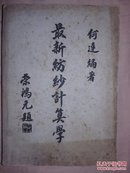 何達編著
最新紡紗計算學
榮鴻元題